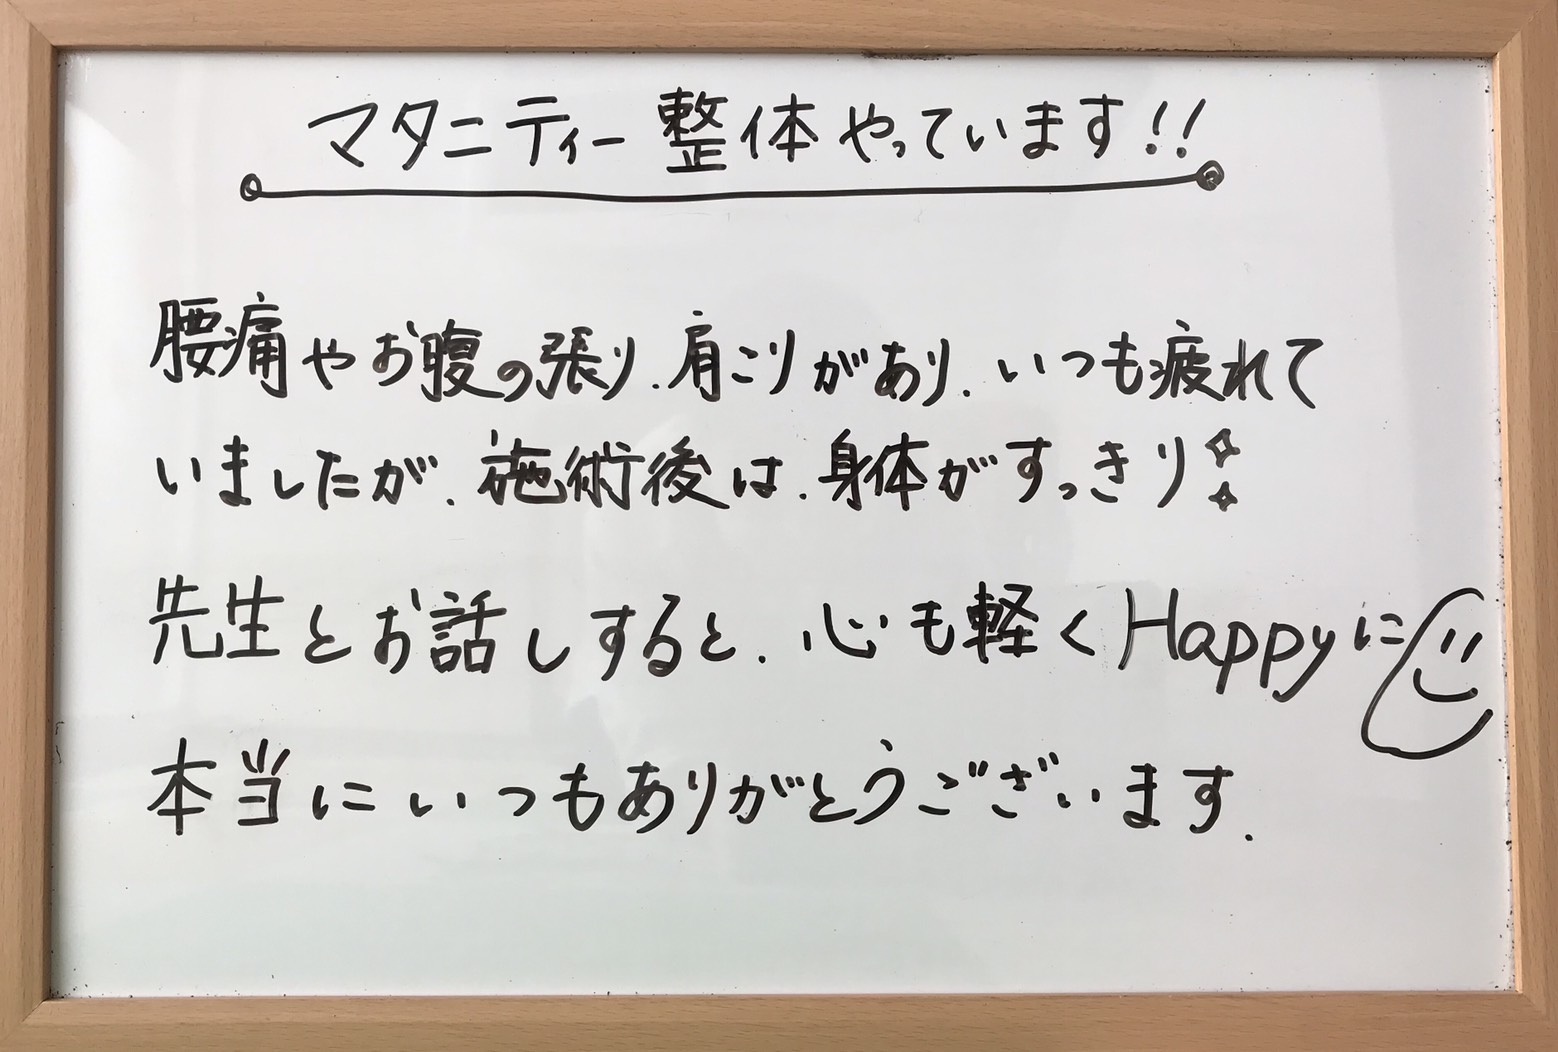 マタニティー整体やっています!!
腰痛やお腹の張り、肩こりがあり、いつも疲れて
いましたが、施術後は、身体がすっきり
先生とお話しすると、心も軽くHappyに
本当にいつもありがとうございます。